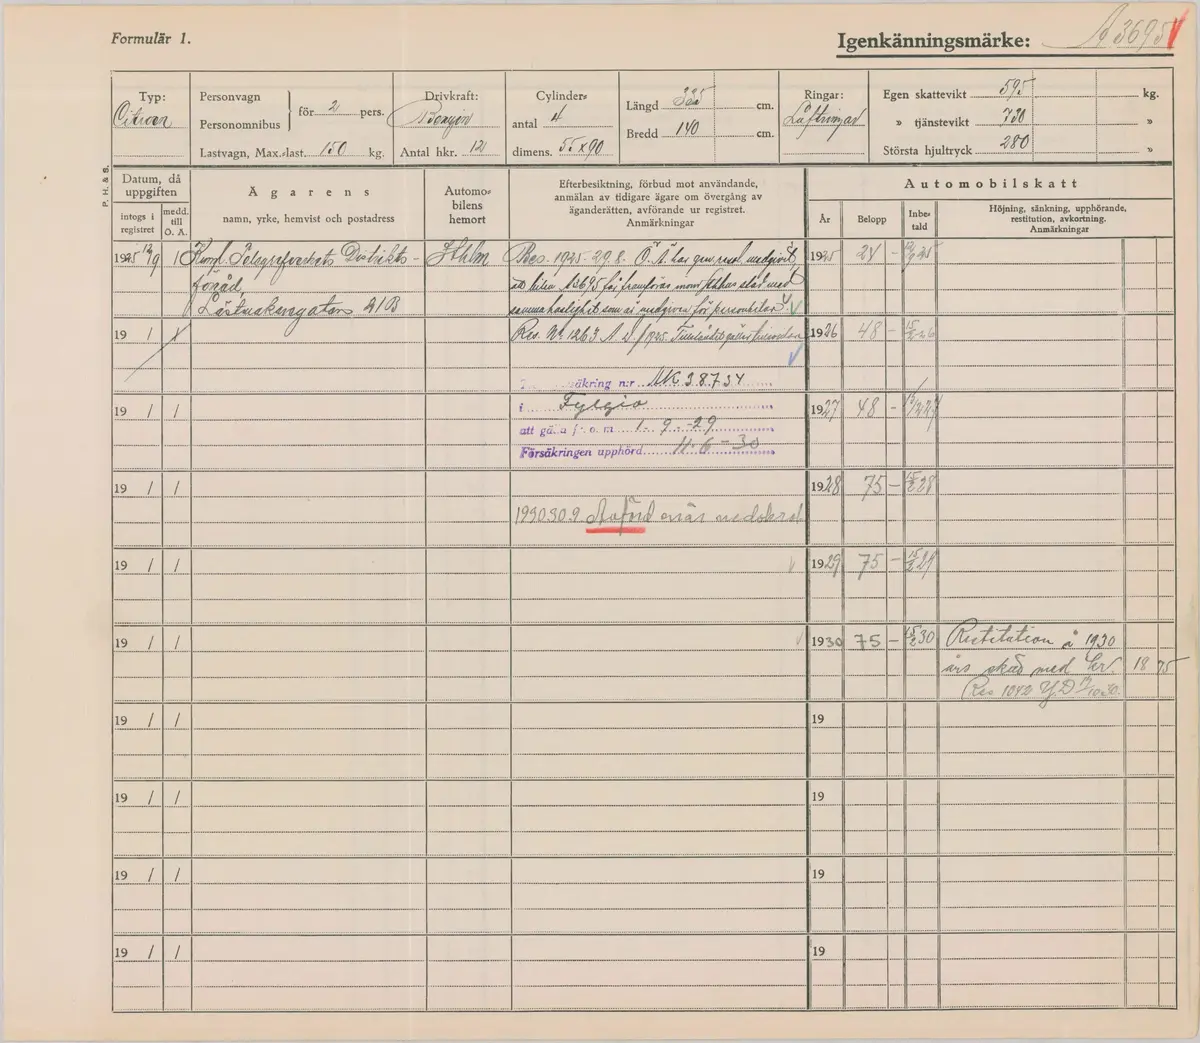 Formulär 1.
Igenkänningsmärke: A3695
Typ: Citroen
Personvagn
Personomnibus
för 2 pers.
Lastvagn, Max.last. 150 kg.
Drivkraft: Benzin
Antal hkr. 12
Cylinder-
antal 4
dimens. 55x90
Längd 325 cm.
Bredd 140 cm.
Ringar: Luftringar
Egen skattevikt 595 kg.
» tjänstevikt 730 »
Största hjultryck 280 »
P. H. & S.
Datum, då uppgiften
intogs i registret
medd. till Ö. Ä.
Ägarens
namn, yrke, hemvist och postadress
Automo-
bilens
hemort
Efterbesiktning, förbud mot användande,
anmälan av tidigare ägare om övergång av
äganderätten, avförande ur registret.
Anmärkningar
Automobilskatt
År
Belopp
Inbe-
tald
Höjning, sänkning, upphörande,
restitution, avkortning.
Anmärkningar
1925 12/9 / Kungl. Telegrafverkets Distrikts-
förråd,
Lästmakaregatan 21B
Sthlm
Res. 1925-29.8. Ö.Ä. har medgivit,
att bilen A3695 få framföras inom stad med
samma hastighet som är medgiven för personbilar
Res. Nr 1263 A.D./1925.
säkring n:r AK 38734
i Fylgia
att gälla fr. o. m 1-9-29
Försäkringen upphörd 11-6-30
1930.30.9. Avförd enär nedskrot.
1925 24 - 12/9 25
1926 48 - 15/2 26
1927 48 - 15/2 27
1928 75 - 15/2 28
1929 75 - 15/2 29
1930 75 - 15/2 30 Restitution å 1930
års skatt med kr. 18 75
Res 1042 Y.D. 1930.
19 / /
19 / /
19 / /
19 / /
19 / /
19 / / 19
19 / / 19
19 / / 19
19 / / 19